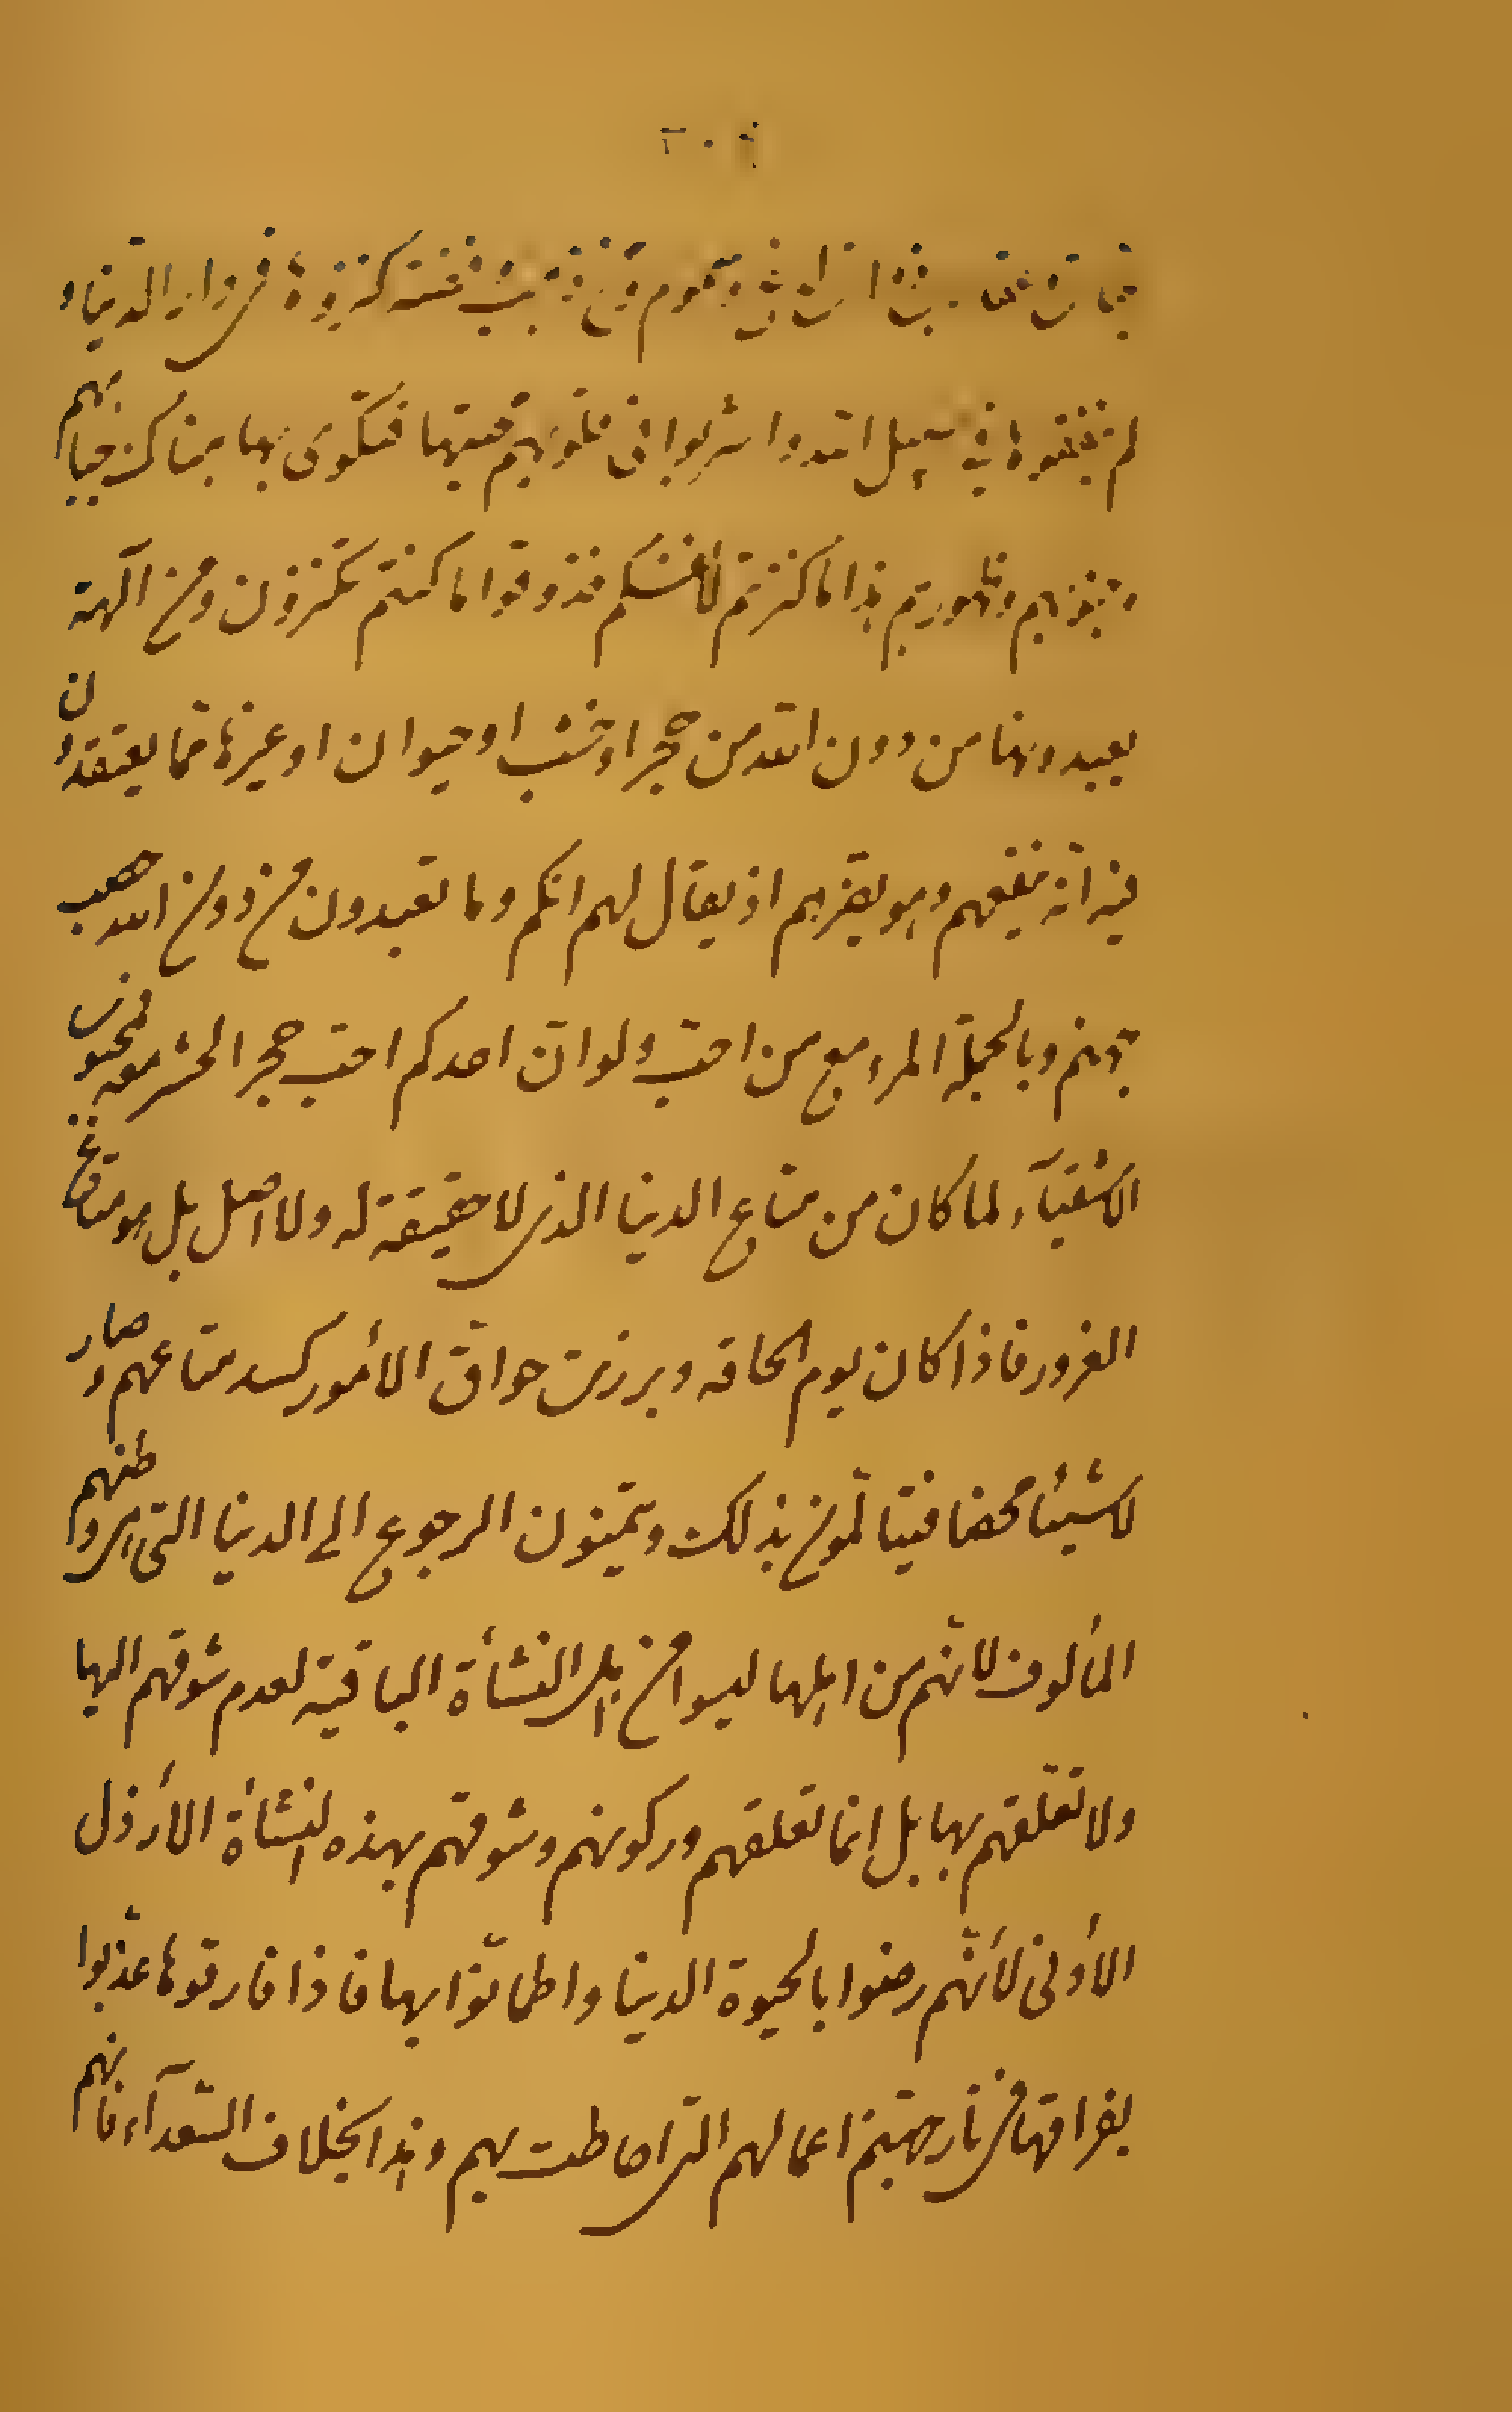 كنزوها فى دار الدنيا و
لم ينفقوها فى سبيل الله واشربوا فى قلوبهم محبتها فتكوى بها هناك جباههم
وجنوبهم وظهورهم هذا ما كنزتم لأنفسكم فذوقوا ما كنتم تكنزون ومن آلهة
يعبدونها من دون الله من حجر او خشب او حيوان او غيرها مما يعتقدون
فيه انه ينفعهم وهو يضرهم اذ يقال لهم انكم وما تعبدون من دون الله حصب
جهنم وبالجملة المرء مع من احب ولو ان احدكم احب حجرا لحشر معه فمحبوب
الاشقيآء لما كان من متاع الدنيا الذى لا حقيقة له ولا اصل بل هو متاع
الغرور فاذا كان يوم الحاقه وبرزت حواق الأمور كسد متاعهم وصار
لا شيئا محضا فيتألمون بذلك ويتمنون الرجوع الى الدنيا التى هى وطنهم
المألوف لانهم من اهلها ليسوا من اهل النشأة الباقية لعدم شوقهم اليها
ولا تعلقهم بها بل انما تعلقهم وركونهم وشوقهم بهذه النشأة الأرذل
الأدنى لأنهم رضوا بالحيوة الدنيا واطمأنوا بها فاذا فارقوها عذبوا
بفراقها فى نار جهنم اعمالهم التى احاطت بهم وهذا بخلاف السعدآء فانهم